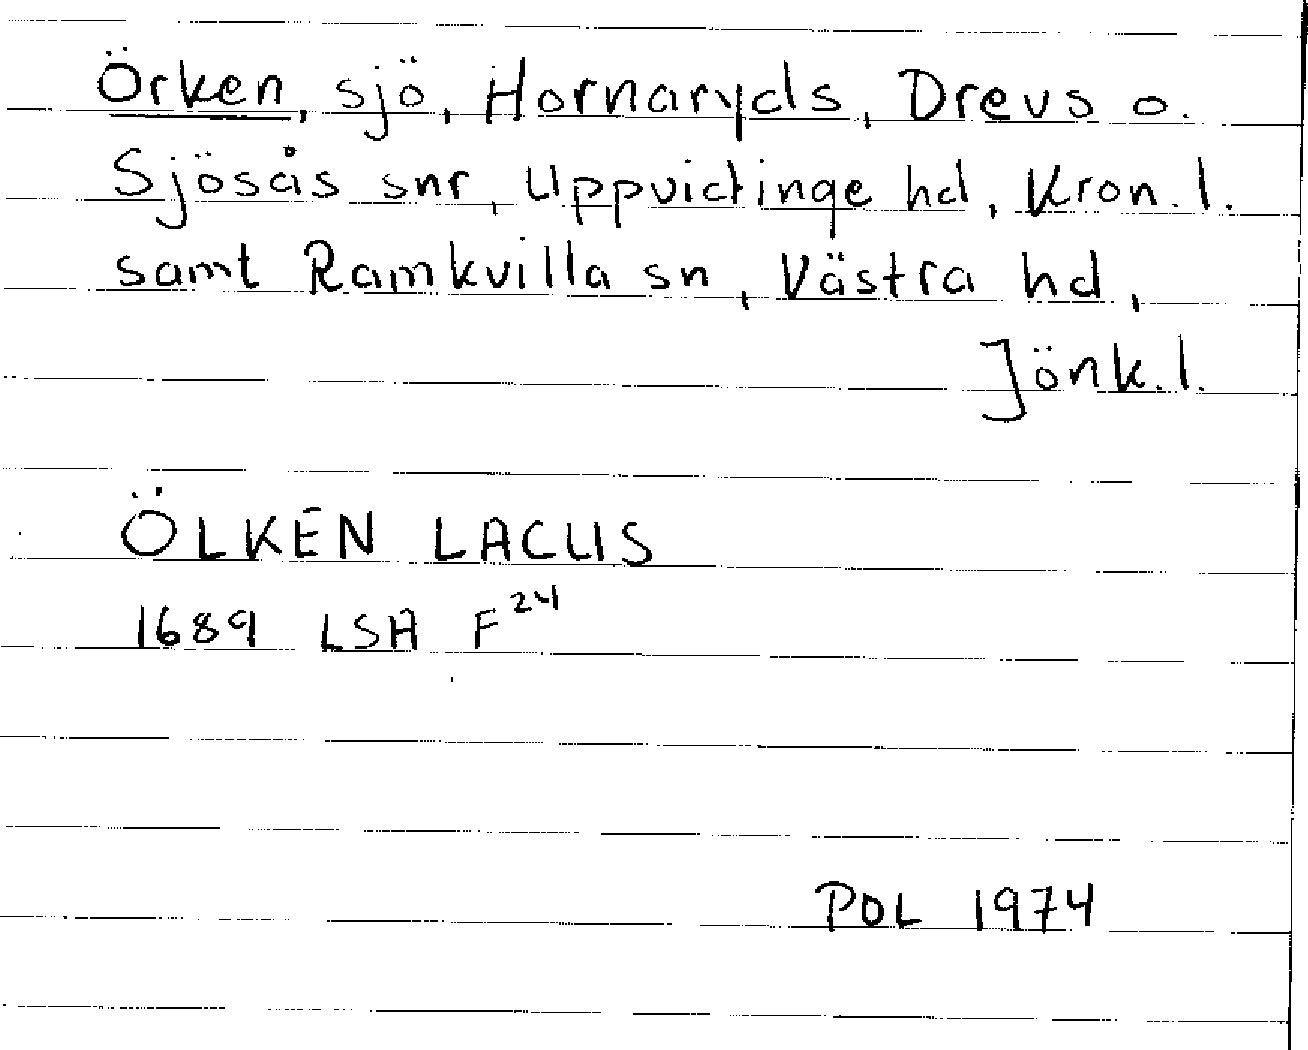 Örken, sjö, Hornaryds, Drevs o.
Sjösås snr, Uppvidinge hd, Kron. l.
samt Ramkvilla sn, Västra hd,
Jönk. l.
ÖLKEN LACUS
1689 LSA F24
POL 1974